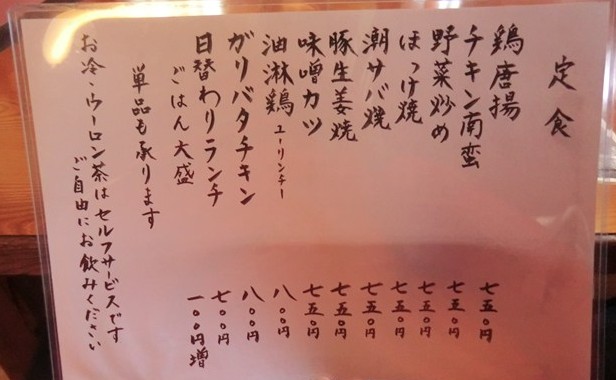 定食
鶏唐揚 七五〇円
チキン南蛮 七五〇円
野菜炒め 七五〇円
ほっけ焼 七五〇円
潮サバ焼 七五〇円
豚生姜焼 七五〇円
味噌カツ 七五〇円
油淋鶏 ユーリンチー 八〇〇円
ガリバタチキン 八〇〇円
日替わりランチ 七〇〇円
ごはん大盛 一〇〇円増
単品も承ります
お冷・ウーロン茶はセルフサービスです
ご自由にお飲みください